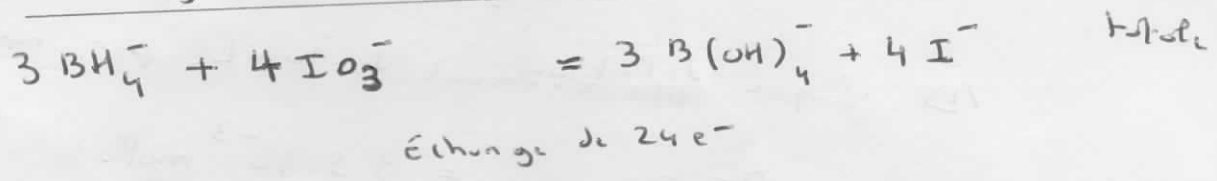 3 BH₄⁻ + 4 IO₃⁻ = 3 B(OH)₄⁻ + 4 I⁻ totale
Échange de 24 e⁻